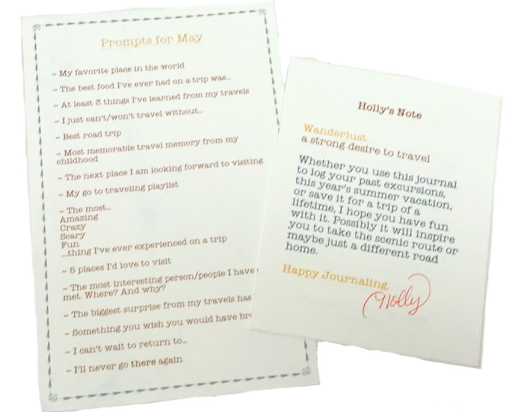 Prompts for May
- My favorite place in the world
- The best food I've ever had on a trip was..
- At least 3 things I've learned from my travels
- I just can't/won't travel without...
- Best road trip
- Most memorable travel memory from my
childhood
- The next place I am looking forward to visiting
- My go to traveling playlist
- The most..
Amazing
Crazy
Scary
Fun
...thing I've ever experienced on a trip
- 5 places I'd love to visit
- The most interesting person/people I have
met. Where? And why?
- The biggest surprise from my travels has
- Something you wish you would have
- I can't wait to return to..
- I'll never go there again
Holly's Note
Wanderlust:
a strong desire to travel
Whether you use this journal
to log your past excursions,
this year's summer vacation,
or save it for a trip of a
lifetime, I hope you have fun
with it. Possibly it will inspire
you to take the scenic route or
maybe just a different road
home.
Happy Journaling,
Holly